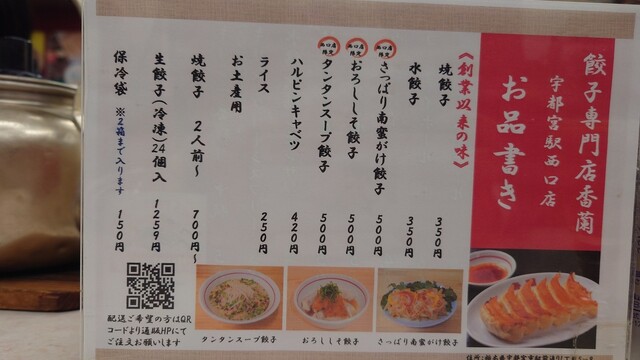 餃子専門店香蘭
宇都宮駅西口店
お品書き
《創業以来の味》
焼餃子 350円
水餃子 350円
西口店限定
さっぱり南蛮がけ餃子 500円
西口店限定
おろししそ餃子 500円
西口店限定
タンタンスープ餃子 500円
ハルピンキャベツ 420円
ライス 250円
お土産用
焼餃子 2人前〜 700円〜
生餃子(冷凍)24個入 1259円
保冷袋 ※2箱まで入ります 150円
配送ご希望の方はQR
コードより通販HPにて
ご注文お願いします
タンタンスープ餃子
おろししそ餃子
さっぱり南蛮がけ餃子